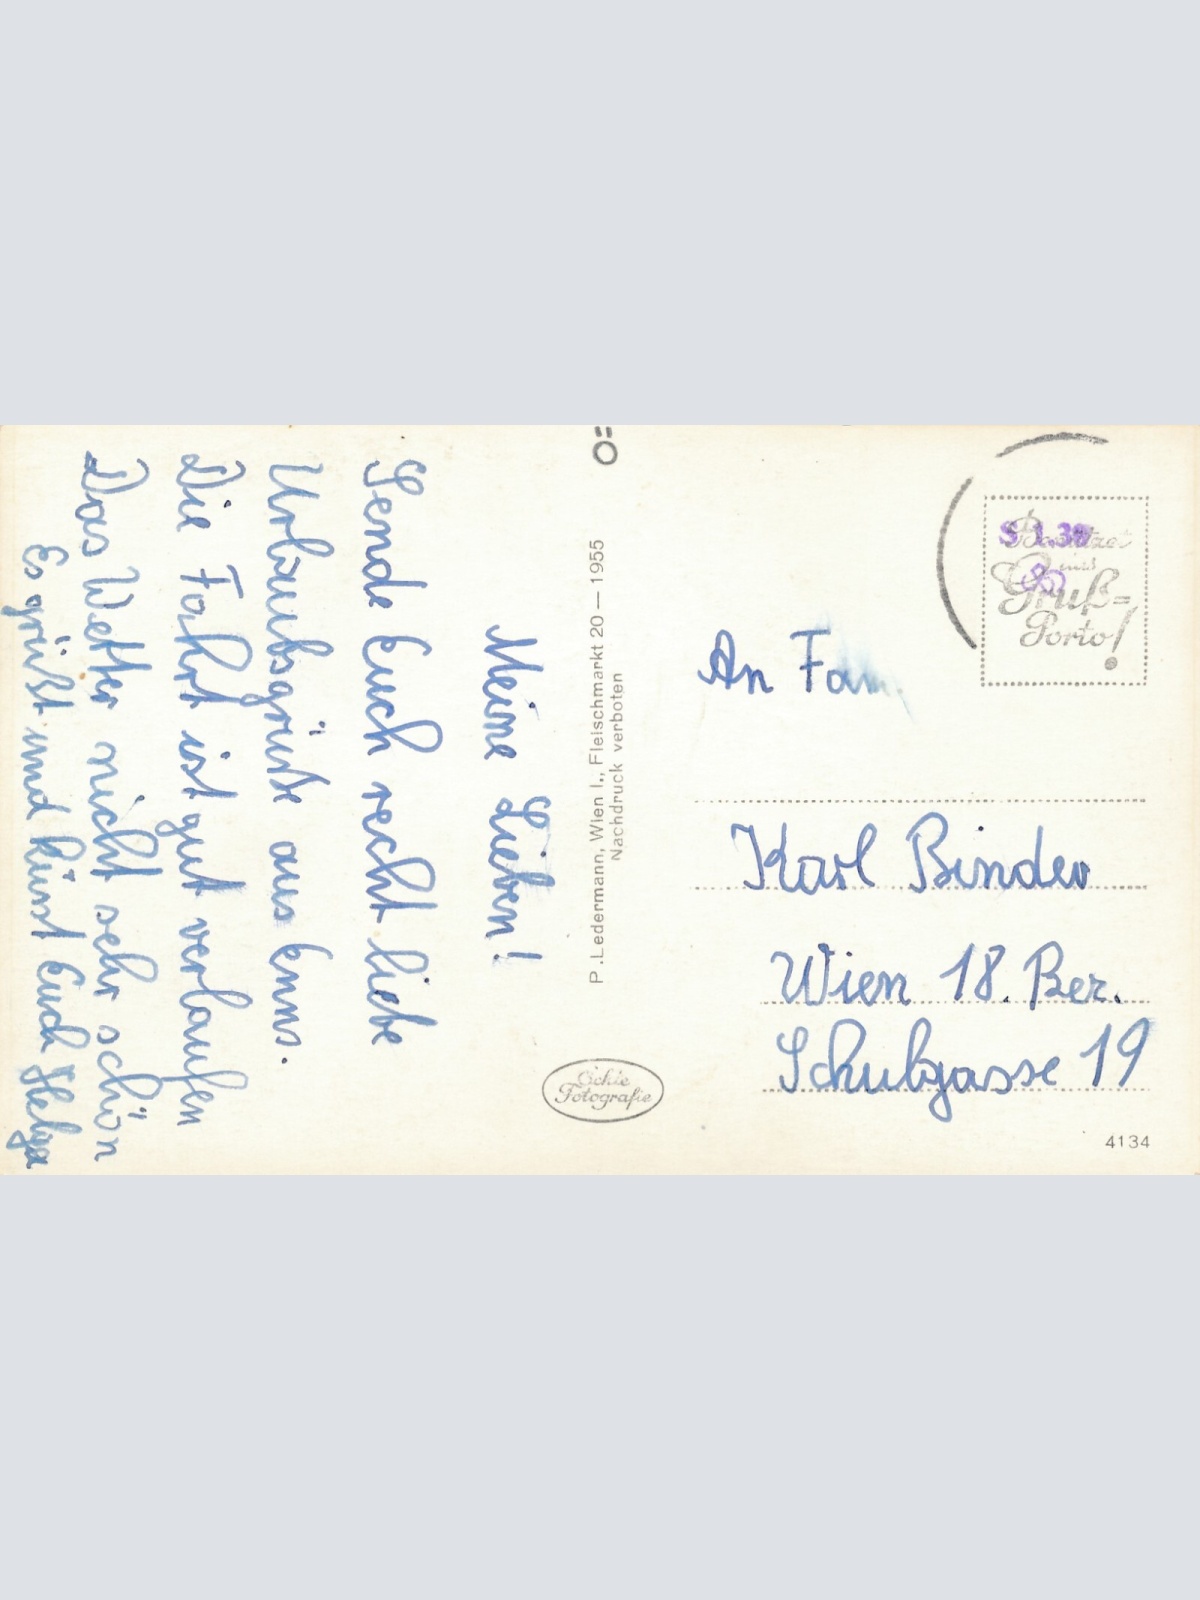 Meine Lieben!
Sende Euch recht liebe
Urlaubsgrüße aus Enns.
Die Fahrt ist gut verlaufen
Das Wetter nicht sehr schön
Es grüßt und küsst Euch Helga
P. Ledermann, Wien I., Fleischmarkt 20 — 1955
Nachdruck verboten
Echte
Fotografie
Benützet
das
Gruß-
Porto!
An Fam.
Karl Binder
Wien 18. Bez.
Schulgasse 19
4134